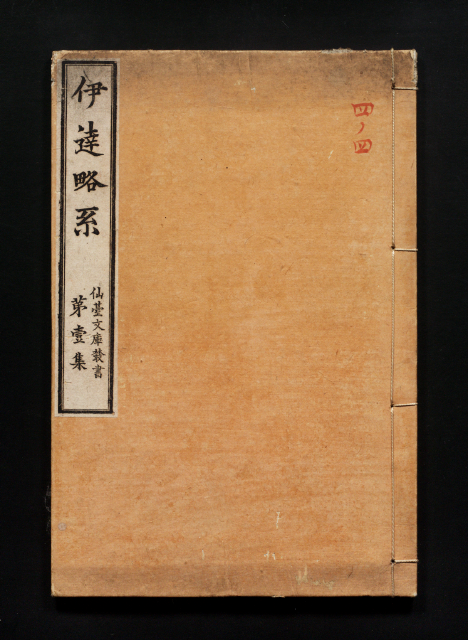 四ノ四
伊達略系
仙臺文庫叢書
第壹集